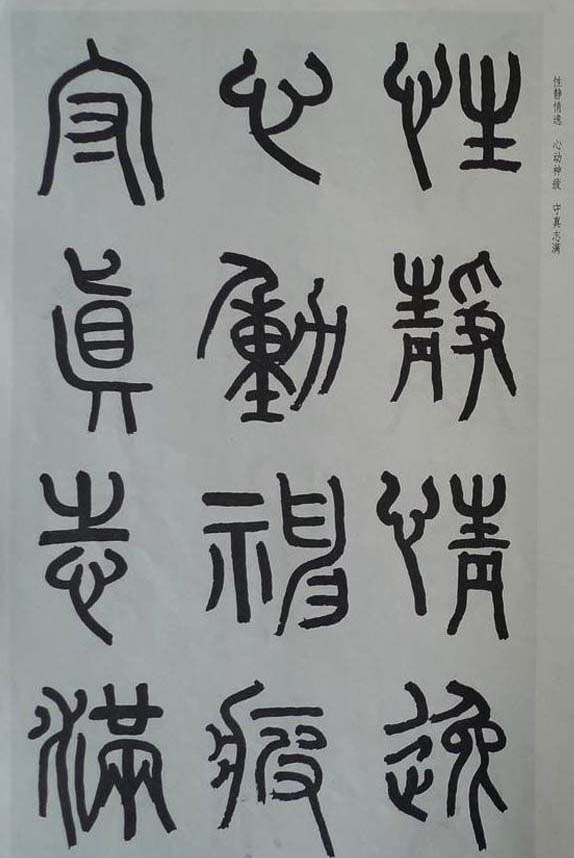 性靜情逸
心動神疲
守眞志滿
性静情逸　心动神疲　守真志满